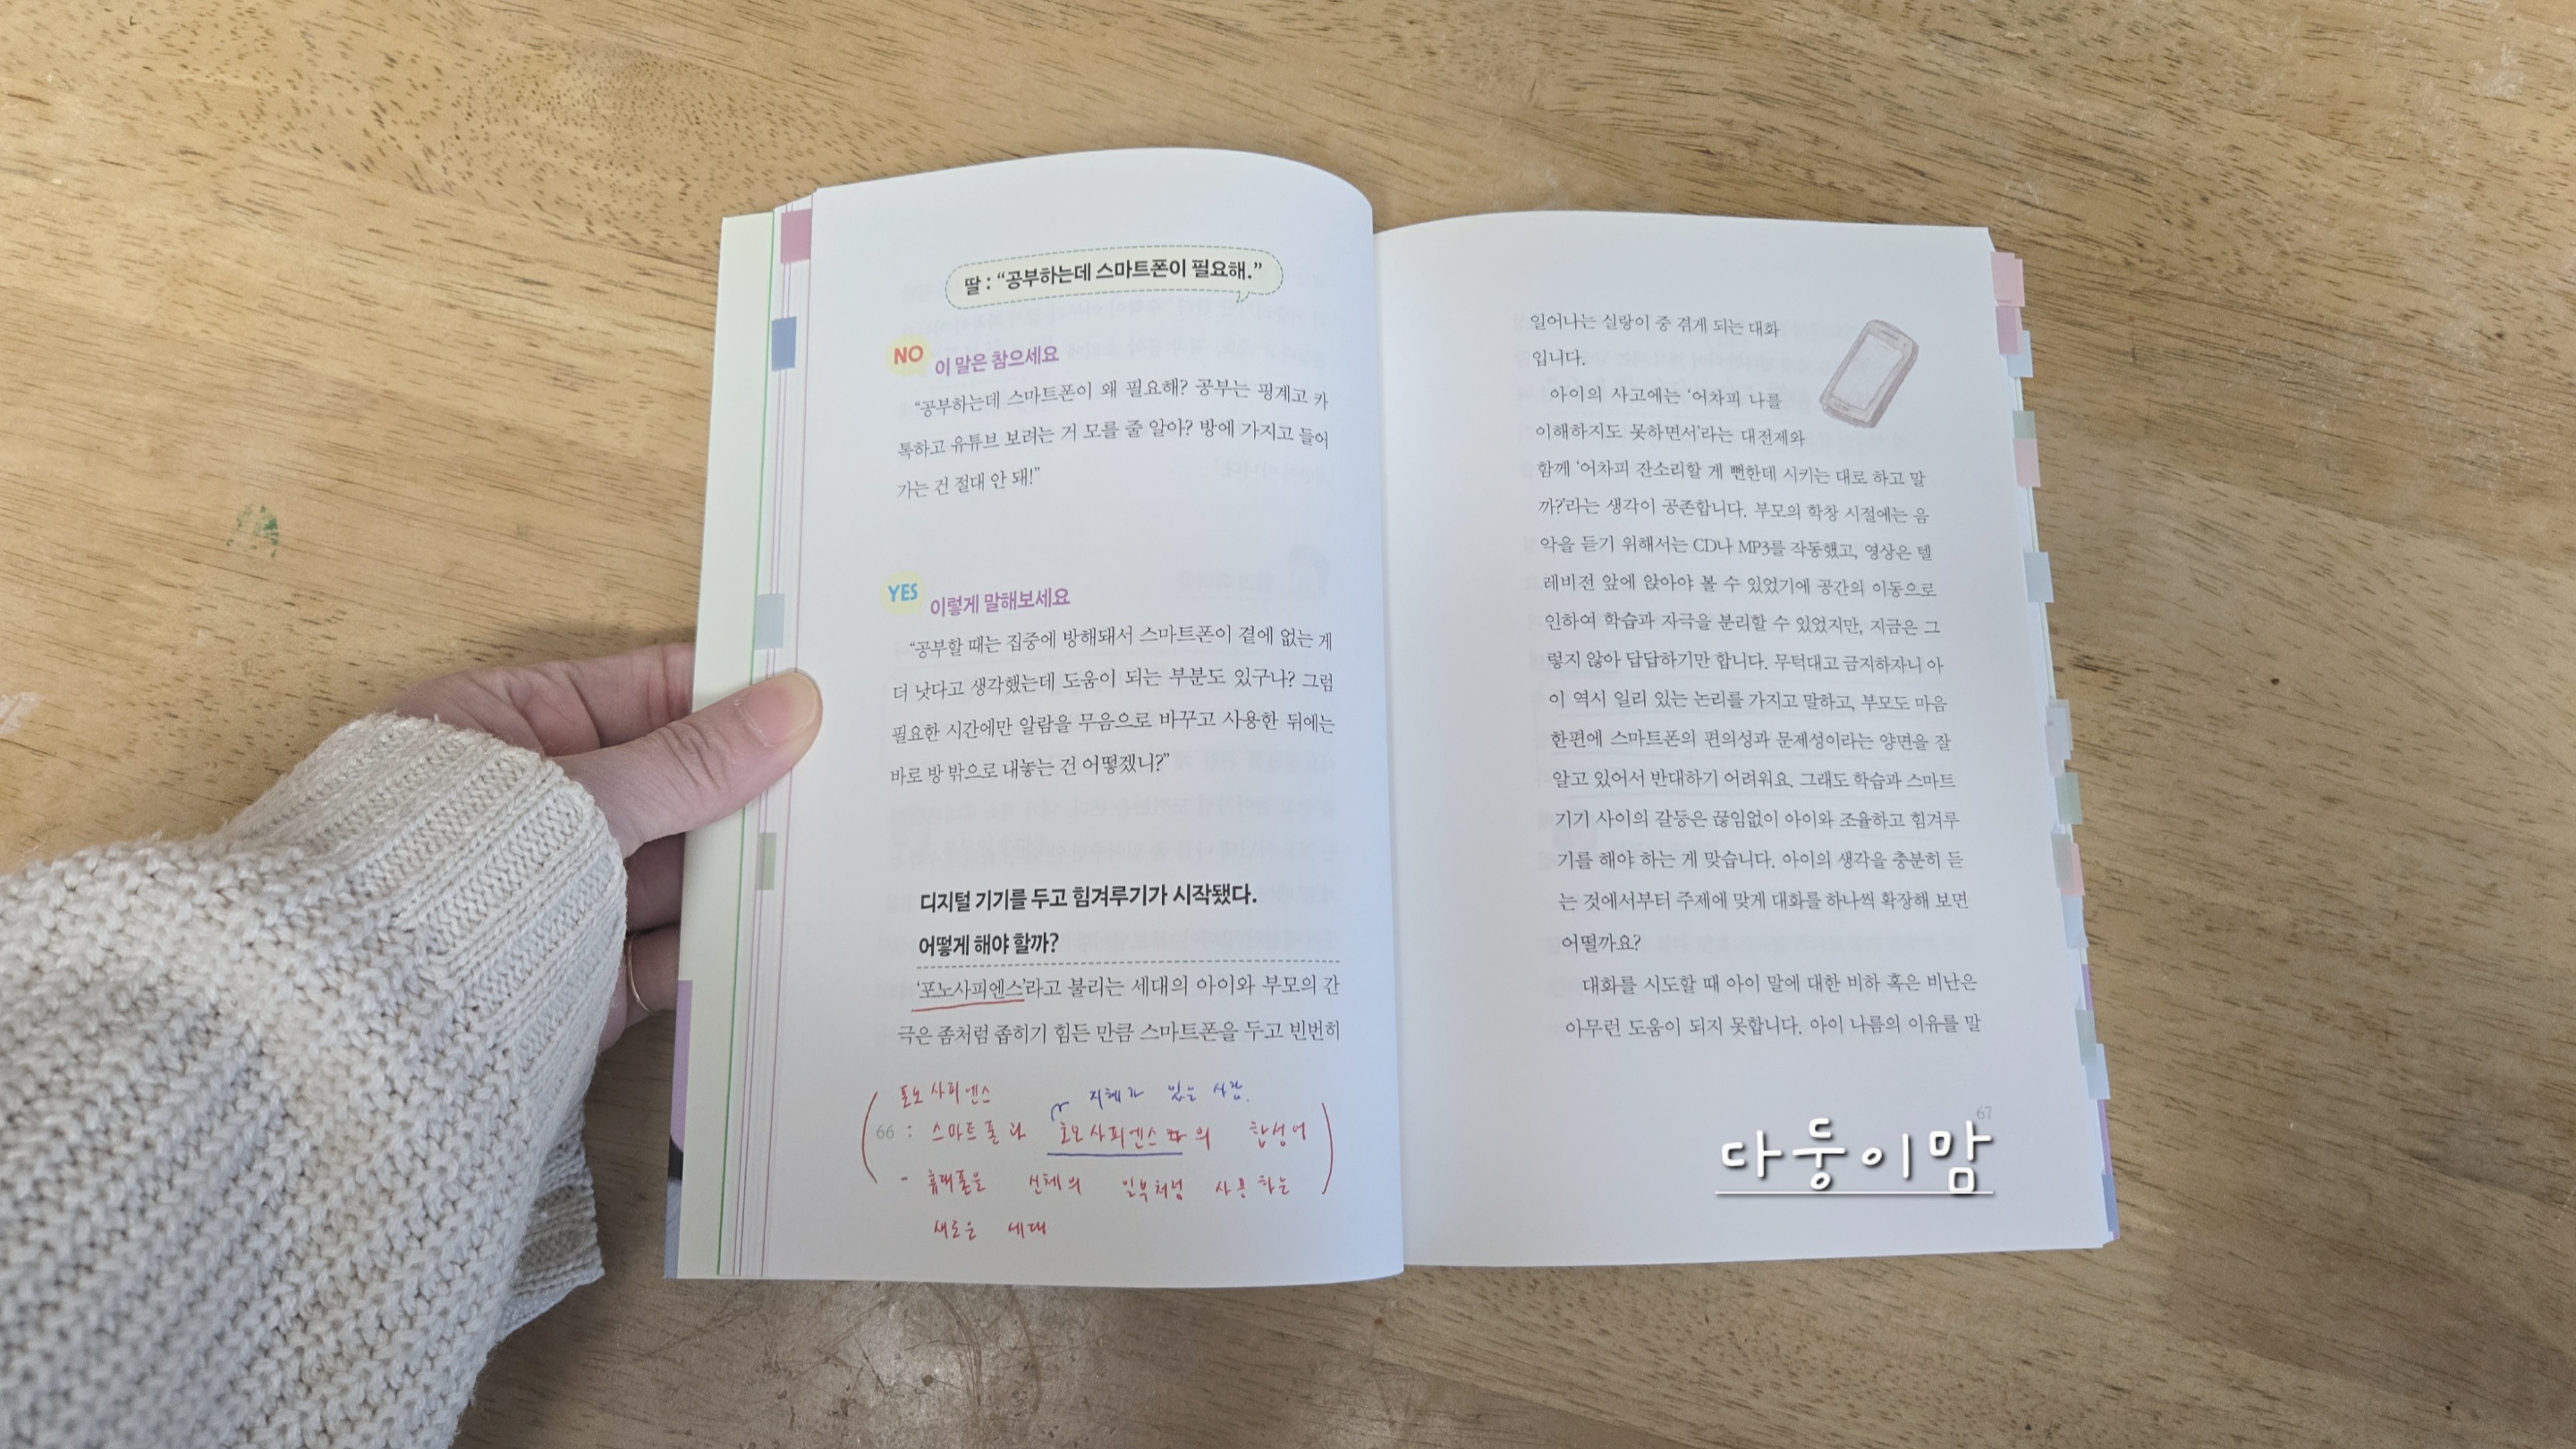 딸 : “공부하는데 스마트폰이 필요해.”
NO 이 말은 참으세요
“공부하는데 스마트폰이 왜 필요해? 공부는 핑계고 카
톡하고 유튜브 보려는 거 모를 줄 알아? 방에 가지고 들어
가는 건 절대 안 돼!”
YES 이렇게 말해보세요
“공부할 때는 집중에 방해돼서 스마트폰이 곁에 없는 게
더 낫다고 생각했는데 도움이 되는 부분도 있구나? 그럼
필요한 시간에만 알람을 무음으로 바꾸고 사용한 뒤에는
바로 방 밖으로 내놓는 건 어떻겠니?”
디지털 기기를 두고 힘겨루기가 시작됐다.
어떻게 해야 할까?
‘포노사피엔스’라고 불리는 세대의 아이와 부모의 간
극은 좀처럼 좁히기 힘든 만큼 스마트폰을 두고 빈번히
포노 사피엔스
지혜가 있는 사람.
66 : 스마트폰과 호모사피엔스의 합성어
- 휴대폰을 신체의 일부처럼 사용하는
새로운 세대
일어나는 실랑이 중 겪게 되는 대화
입니다.
아이의 사고에는 ‘어차피 나를
이해하지도 못하면서’라는 대전제와
함께 ‘어차피 잔소리할 게 뻔한데 시키는 대로 하고 말
까?’라는 생각이 공존합니다. 부모의 학창 시절에는 음
악을 듣기 위해서는 CD나 MP3를 작동했고, 영상은 텔
레비전 앞에 앉아야 볼 수 있었기에 공간의 이동으로
인하여 학습과 자극을 분리할 수 있었지만, 지금은 그
렇지 않아 답답하기만 합니다. 무턱대고 금지하자니 아
이 역시 일리 있는 논리를 가지고 말하고, 부모도 마음
한편에 스마트폰의 편의성과 문제성이라는 양면을 잘
알고 있어서 반대하기 어려워요. 그래도 학습과 스마트
기기 사이의 갈등은 끊임없이 아이와 조율하고 힘겨루
기를 해야 하는 게 맞습니다. 아이의 생각을 충분히 듣
는 것에서부터 주제에 맞게 대화를 하나씩 확장해 보면
어떨까요?
대화를 시도할 때 아이 말에 대한 비하 혹은 비난은
아무런 도움이 되지 못합니다. 아이 나름의 이유를 말
67
다둥이맘